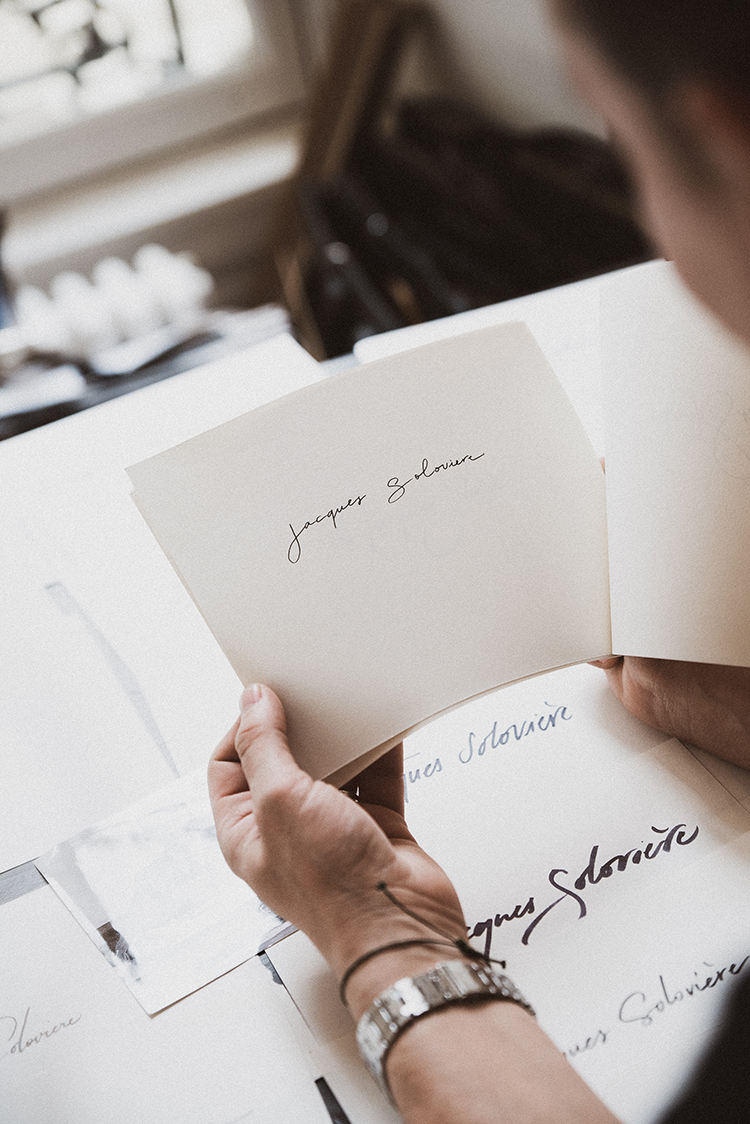 Jacques Soloviere
ques Solovière
cques Solovière
ues Solovière
Soloviere